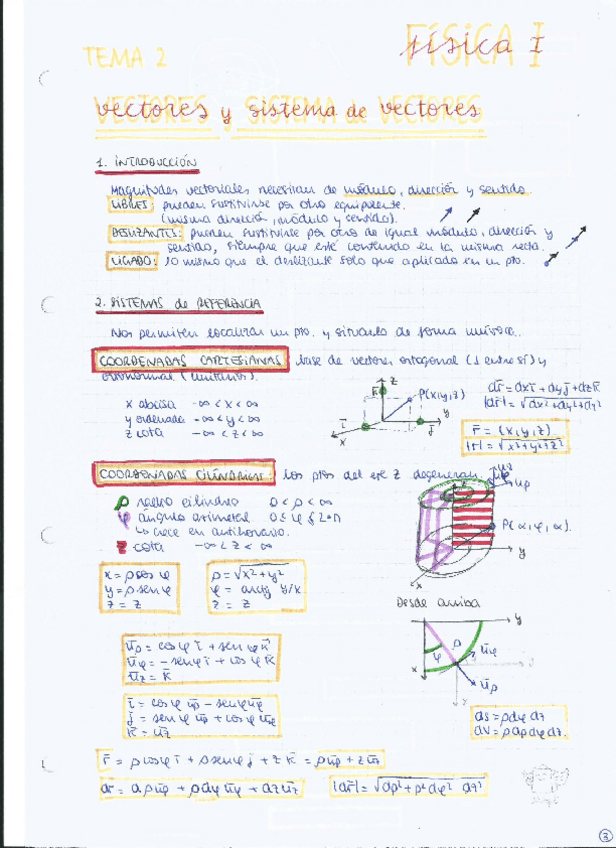 TEMA 2
FÍSICA I
VECTORES y SISTEMA de VECTORES
1. INTRODUCCIÓN
Magnitudes vectoriales necesitan de módulo, dirección y sentido.
LIBRES: pueden sustituirse por otro equipolente.
(misma dirección, módulo y sentido).
DESLIZANTES: pueden sustituirse por otro de igual módulo, dirección y
sentido, siempre que esté contenido en la misma recta.
LIGADO: lo mismo que el deslizante solo que aplicado en un pto.
2. SISTEMAS de REFERENCIA
Nos permiten localizar un pto. y situarlo de forma unívoca.
COORDENADAS CARTESIANAS: base de vectores ortogonal (⊥ entre sí) y
ortonormal (unitarios).
x abcisa -∞ < x < ∞
y ordenada -∞ < y < ∞
z cota -∞ < z < ∞
z
k̄
P(x,y,z)
ī
j̄
x
y
dr̄ = dxī + dyj̄ + dzk̄
|dr̄| = √dx²+dy²+dz²
r̄ = (x,y,z)
|r̄| = √x²+y²+z²
COORDENADAS CILÍNDRICAS: los ptos del eje z degeneran.
ρ radio cilindro 0 < ρ < ∞
φ ángulo azimetal 0 ≤ φ ≤ 2π
↳ crece en antihorario.
z cota -∞ < z < ∞
ūρ
P(α,φ,α).
y
x = ρ cos φ
y = ρ·senφ
z = z
ρ = √x²+y²
φ = arctg y/x
z = z
Desde arriba
y
φ
ρ
ūφ
x
ūρ
ūρ = cosφ ī + senφ k̄
ūφ = -senφ ī + cosφ k̄
ūz = k̄
ī = cosφ ūρ - senφ ūφ
j̄ = senφ ūρ + cosφ ūφ
k̄ = ūz
ds = ρdφ dz
dV = ρdρdφdz.
r̄ = ρcosφ ī + ρsenφ j̄ + z k̄ = ρūρ + zūz
dr̄ = dρūρ + ρdφ ūφ + dzūz
|dr̄| = √dρ²+ρ²dφ² dz²
3